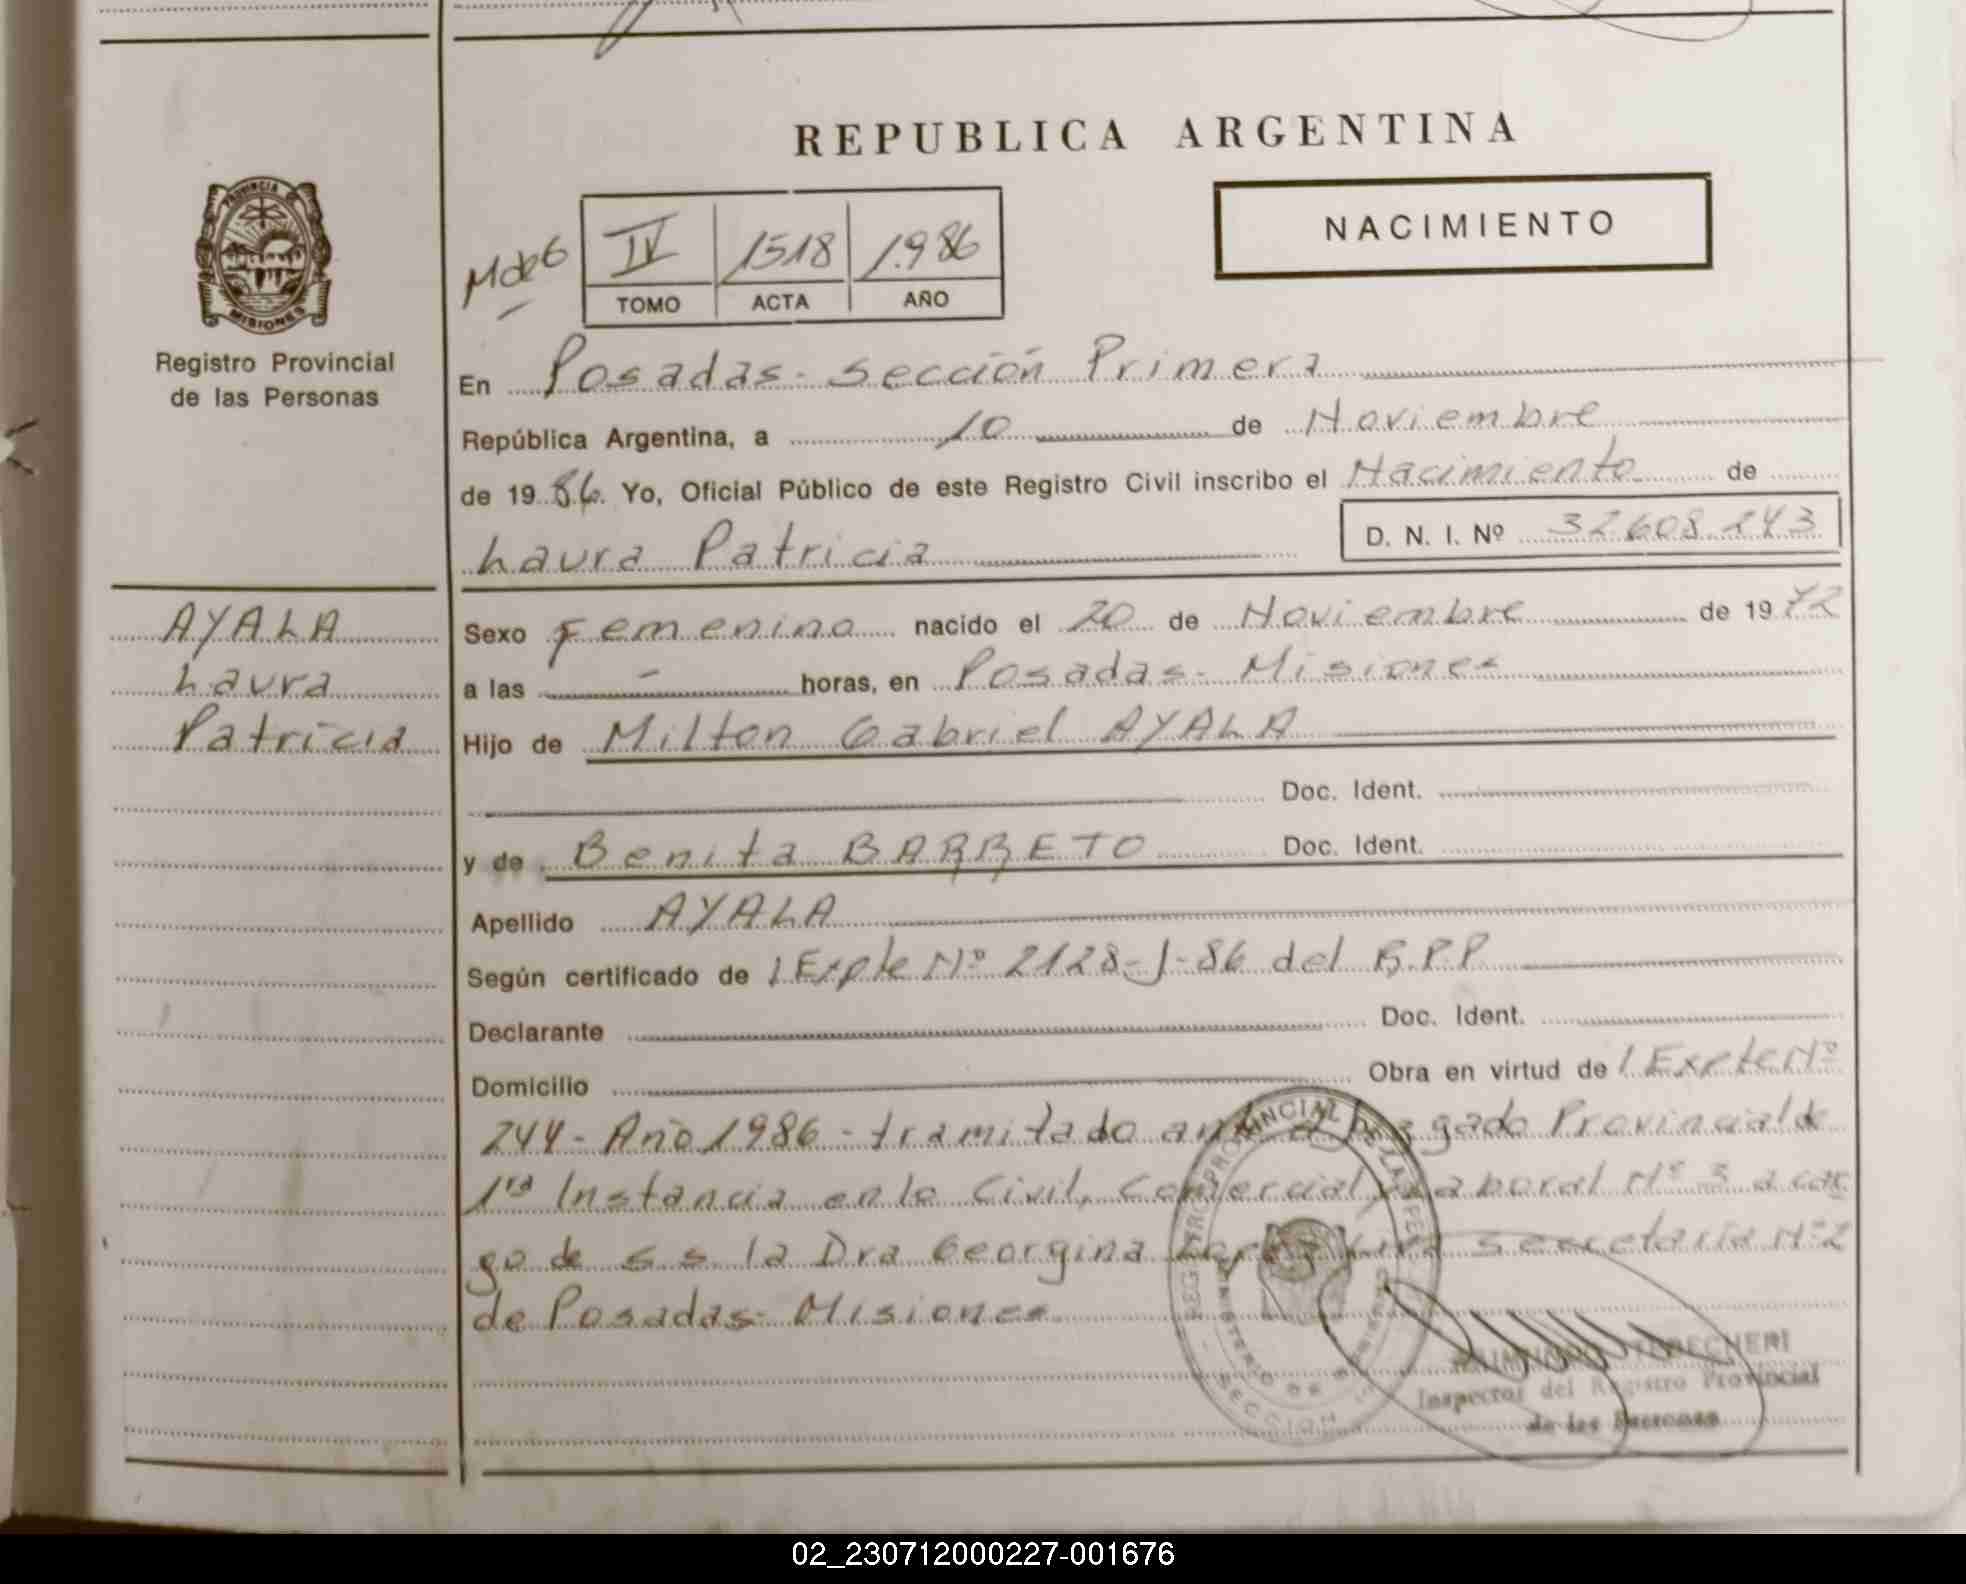 REPUBLICA ARGENTINA
NACIMIENTO
PROVINCIA DE
MISIONES
Registro Provincial
de las Personas
IV 1518 1.986
TOMO ACTA AÑO
En Posadas - Sección Primera
República Argentina, a 10 de Noviembre
de 1986. Yo, Oficial Público de este Registro Civil inscribo el Nacimiento de
Laura Patricia D. N. I. Nº 32.608.243
AYALA
Laura
Patricia
Sexo Femenino nacido el 20 de Noviembre de 1972
a las - horas, en Posadas - Misiones
Hijo de Milton Gabriel AYALA
Doc. Ident.
y de Benita BARRETO Doc. Ident.
Apellido AYALA
Según certificado de 1 Expte Nº 2128-J-86 del R.P.P
Declarante Doc. Ident.
Domicilio Obra en virtud de 1 Expte Nº
244 - Año 1986 - tramitado Juzgado Provincial de
1ra Instancia en lo Civil, Comercial y Laboral Nº 3 a car
go de S.S. la Dra Georgina secretaria Nº 2
de Posadas - Misiones
REGISTRO PROVINCIAL DE LAS PERSONAS
MINISTERIO DE GOBIERNO
SECCION
Inspector del Registro Provincial
de las Personas
02_230712000227-001676